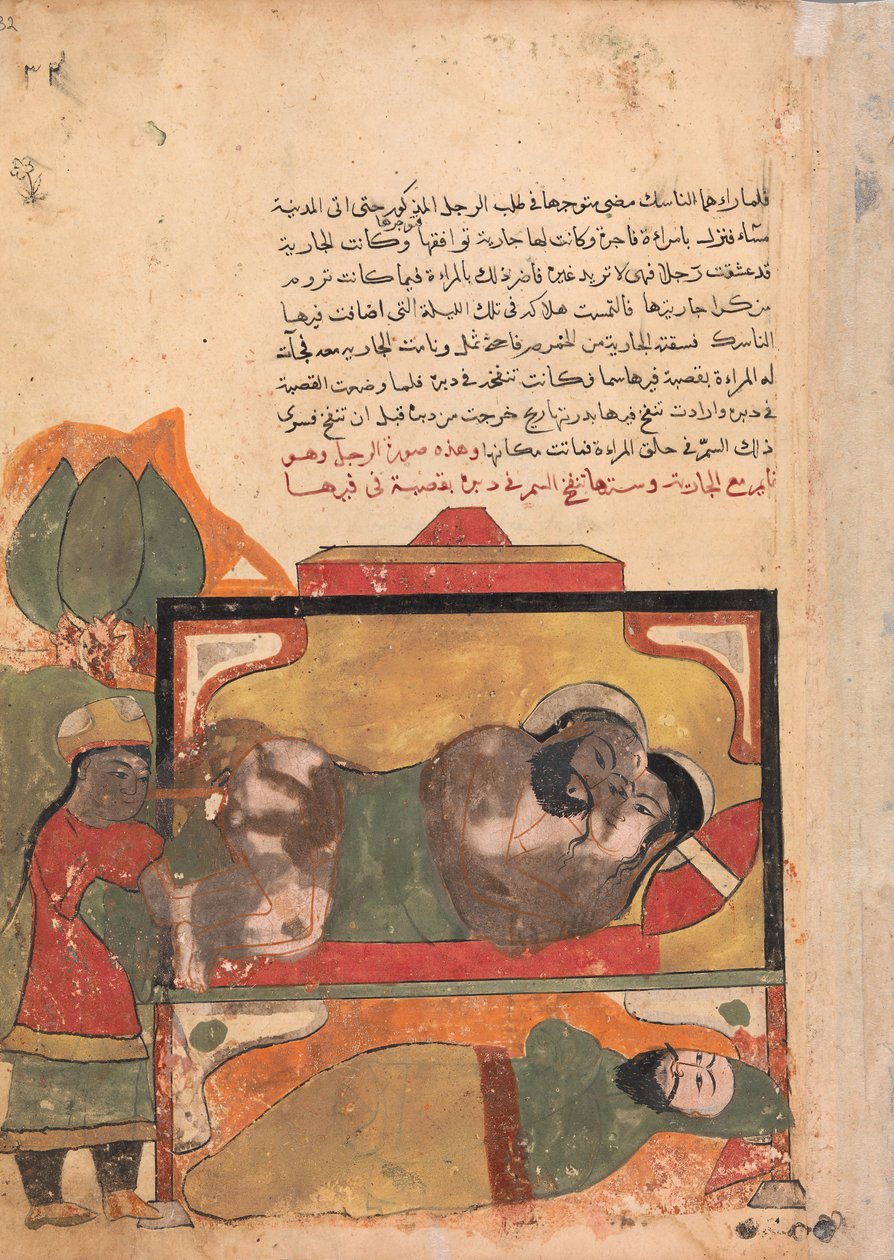 32
٣٢
فلما راءهما الناسك مضى متوجها في طلب الرجل المذكور حتى اتى المدنية
مساء فنزل بامراءة فاجرة وكانت لها جارية توافقها وكانت الجارية
قد عشقت رجلا فهى لا تريد غيره فاضر ذلك بالمراءة فيما كانت تروم
من كرا جاريتها فالتمست هلاكه فى تلك الليلة التى اضافت فيها
الناسك فسقته الجارية من الخمر صرفا حتى ثمل ونامت الجاريه معه فجآت
له المراءة بقصبة فيها سما وكانت تنفخه في دبره فلما وضعت القصبة
في دبره وارادت تنفخ فيها بدرتها ريح خرجت من دبره قبل ان تنفخ فسرى
ذلك السمّ في حلق المراءة فماتت مكانها وهذه صورة الرجل وهو
نايم مع الجارية وستها تنفخ السم في دبره بقصبة في فيها